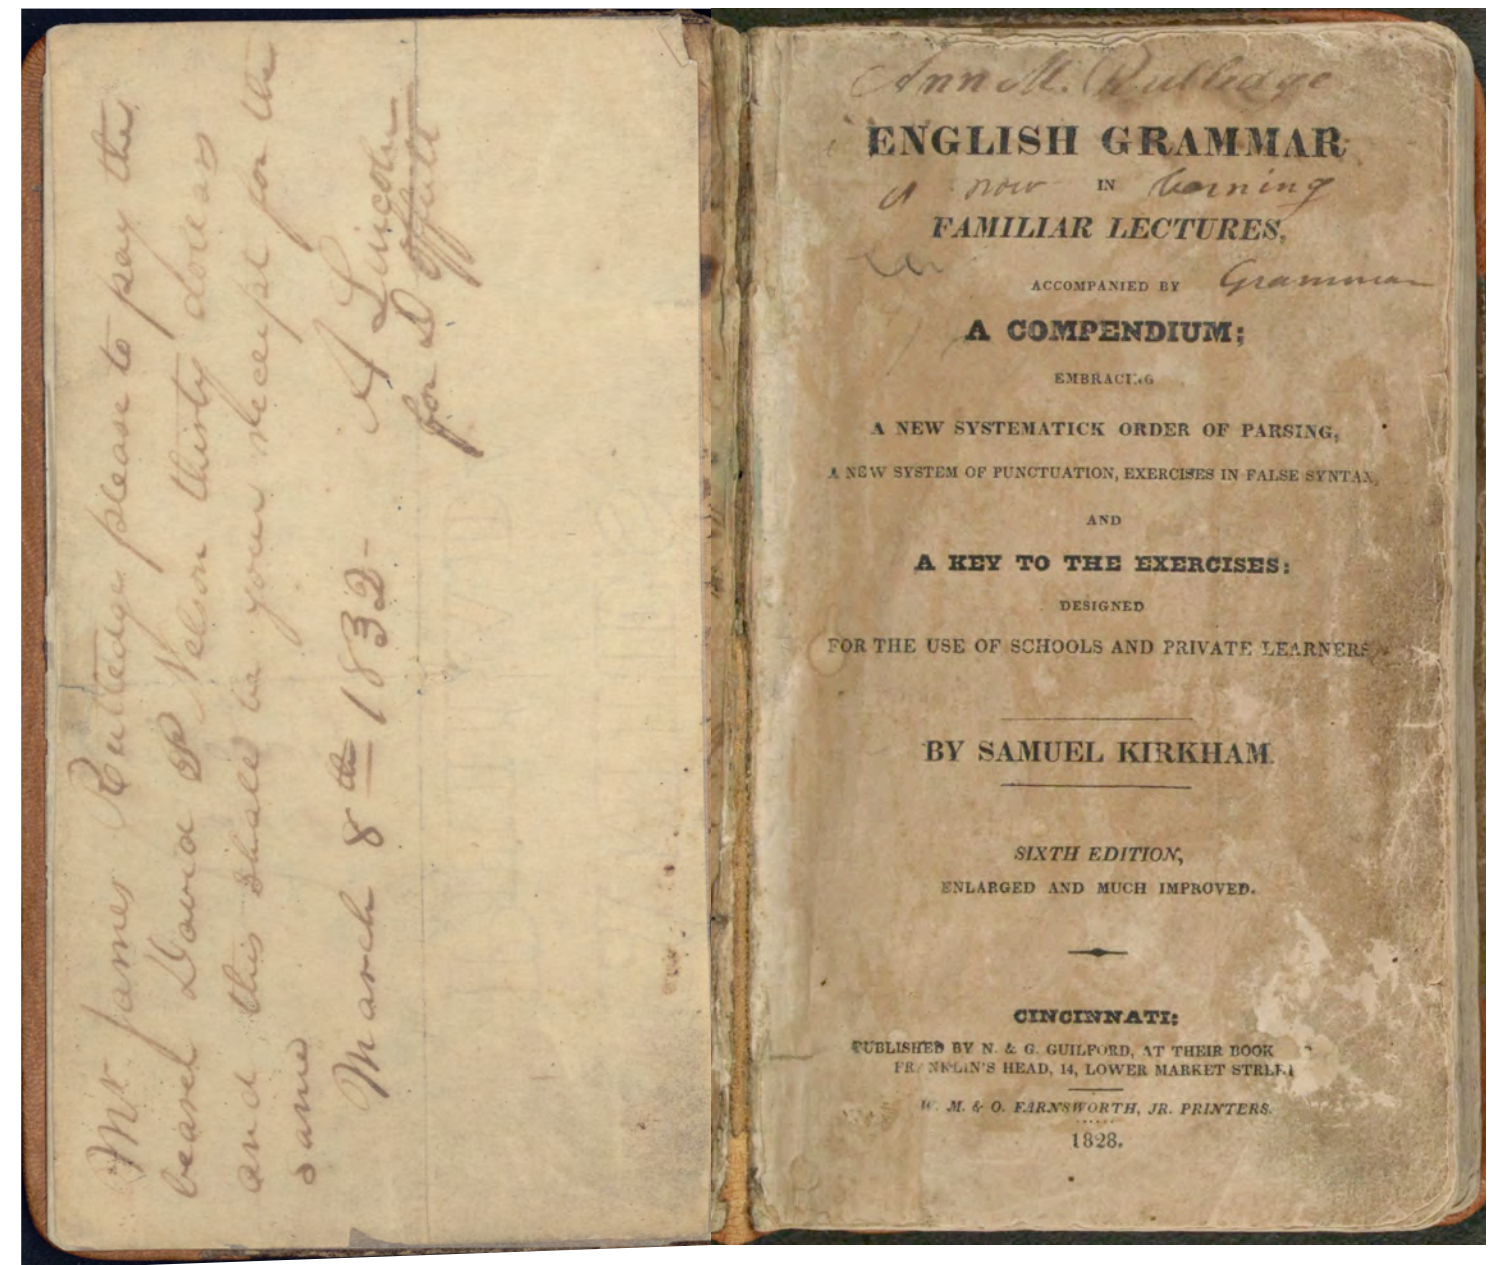 Mr James Rutledge please to pay the
bearer David P Nelson thirty dollars
and this shall be your receipt for the
same
March 8th 1832-
A Lincoln
for D Offutt
Ann M. Rutledge
ENGLISH GRAMMAR
is now IN learning
FAMILIAR LECTURES,
ACCOMPANIED BY Grammar
A COMPENDIUM;
EMBRACING
A NEW SYSTEMATICK ORDER OF PARSING,
A NEW SYSTEM OF PUNCTUATION, EXERCISES IN FALSE SYNTAX,
AND
A KEY TO THE EXERCISES:
DESIGNED
FOR THE USE OF SCHOOLS AND PRIVATE LEARNERS.
BY SAMUEL KIRKHAM.
SIXTH EDITION,
ENLARGED AND MUCH IMPROVED.
CINCINNATI:
PUBLISHED BY N. & G. GUILFORD, AT THEIR BOOK
FRANKLIN'S HEAD, 14, LOWER MARKET STREET
W. M. & O. FARNSWORTH, JR. PRINTERS.
1828.